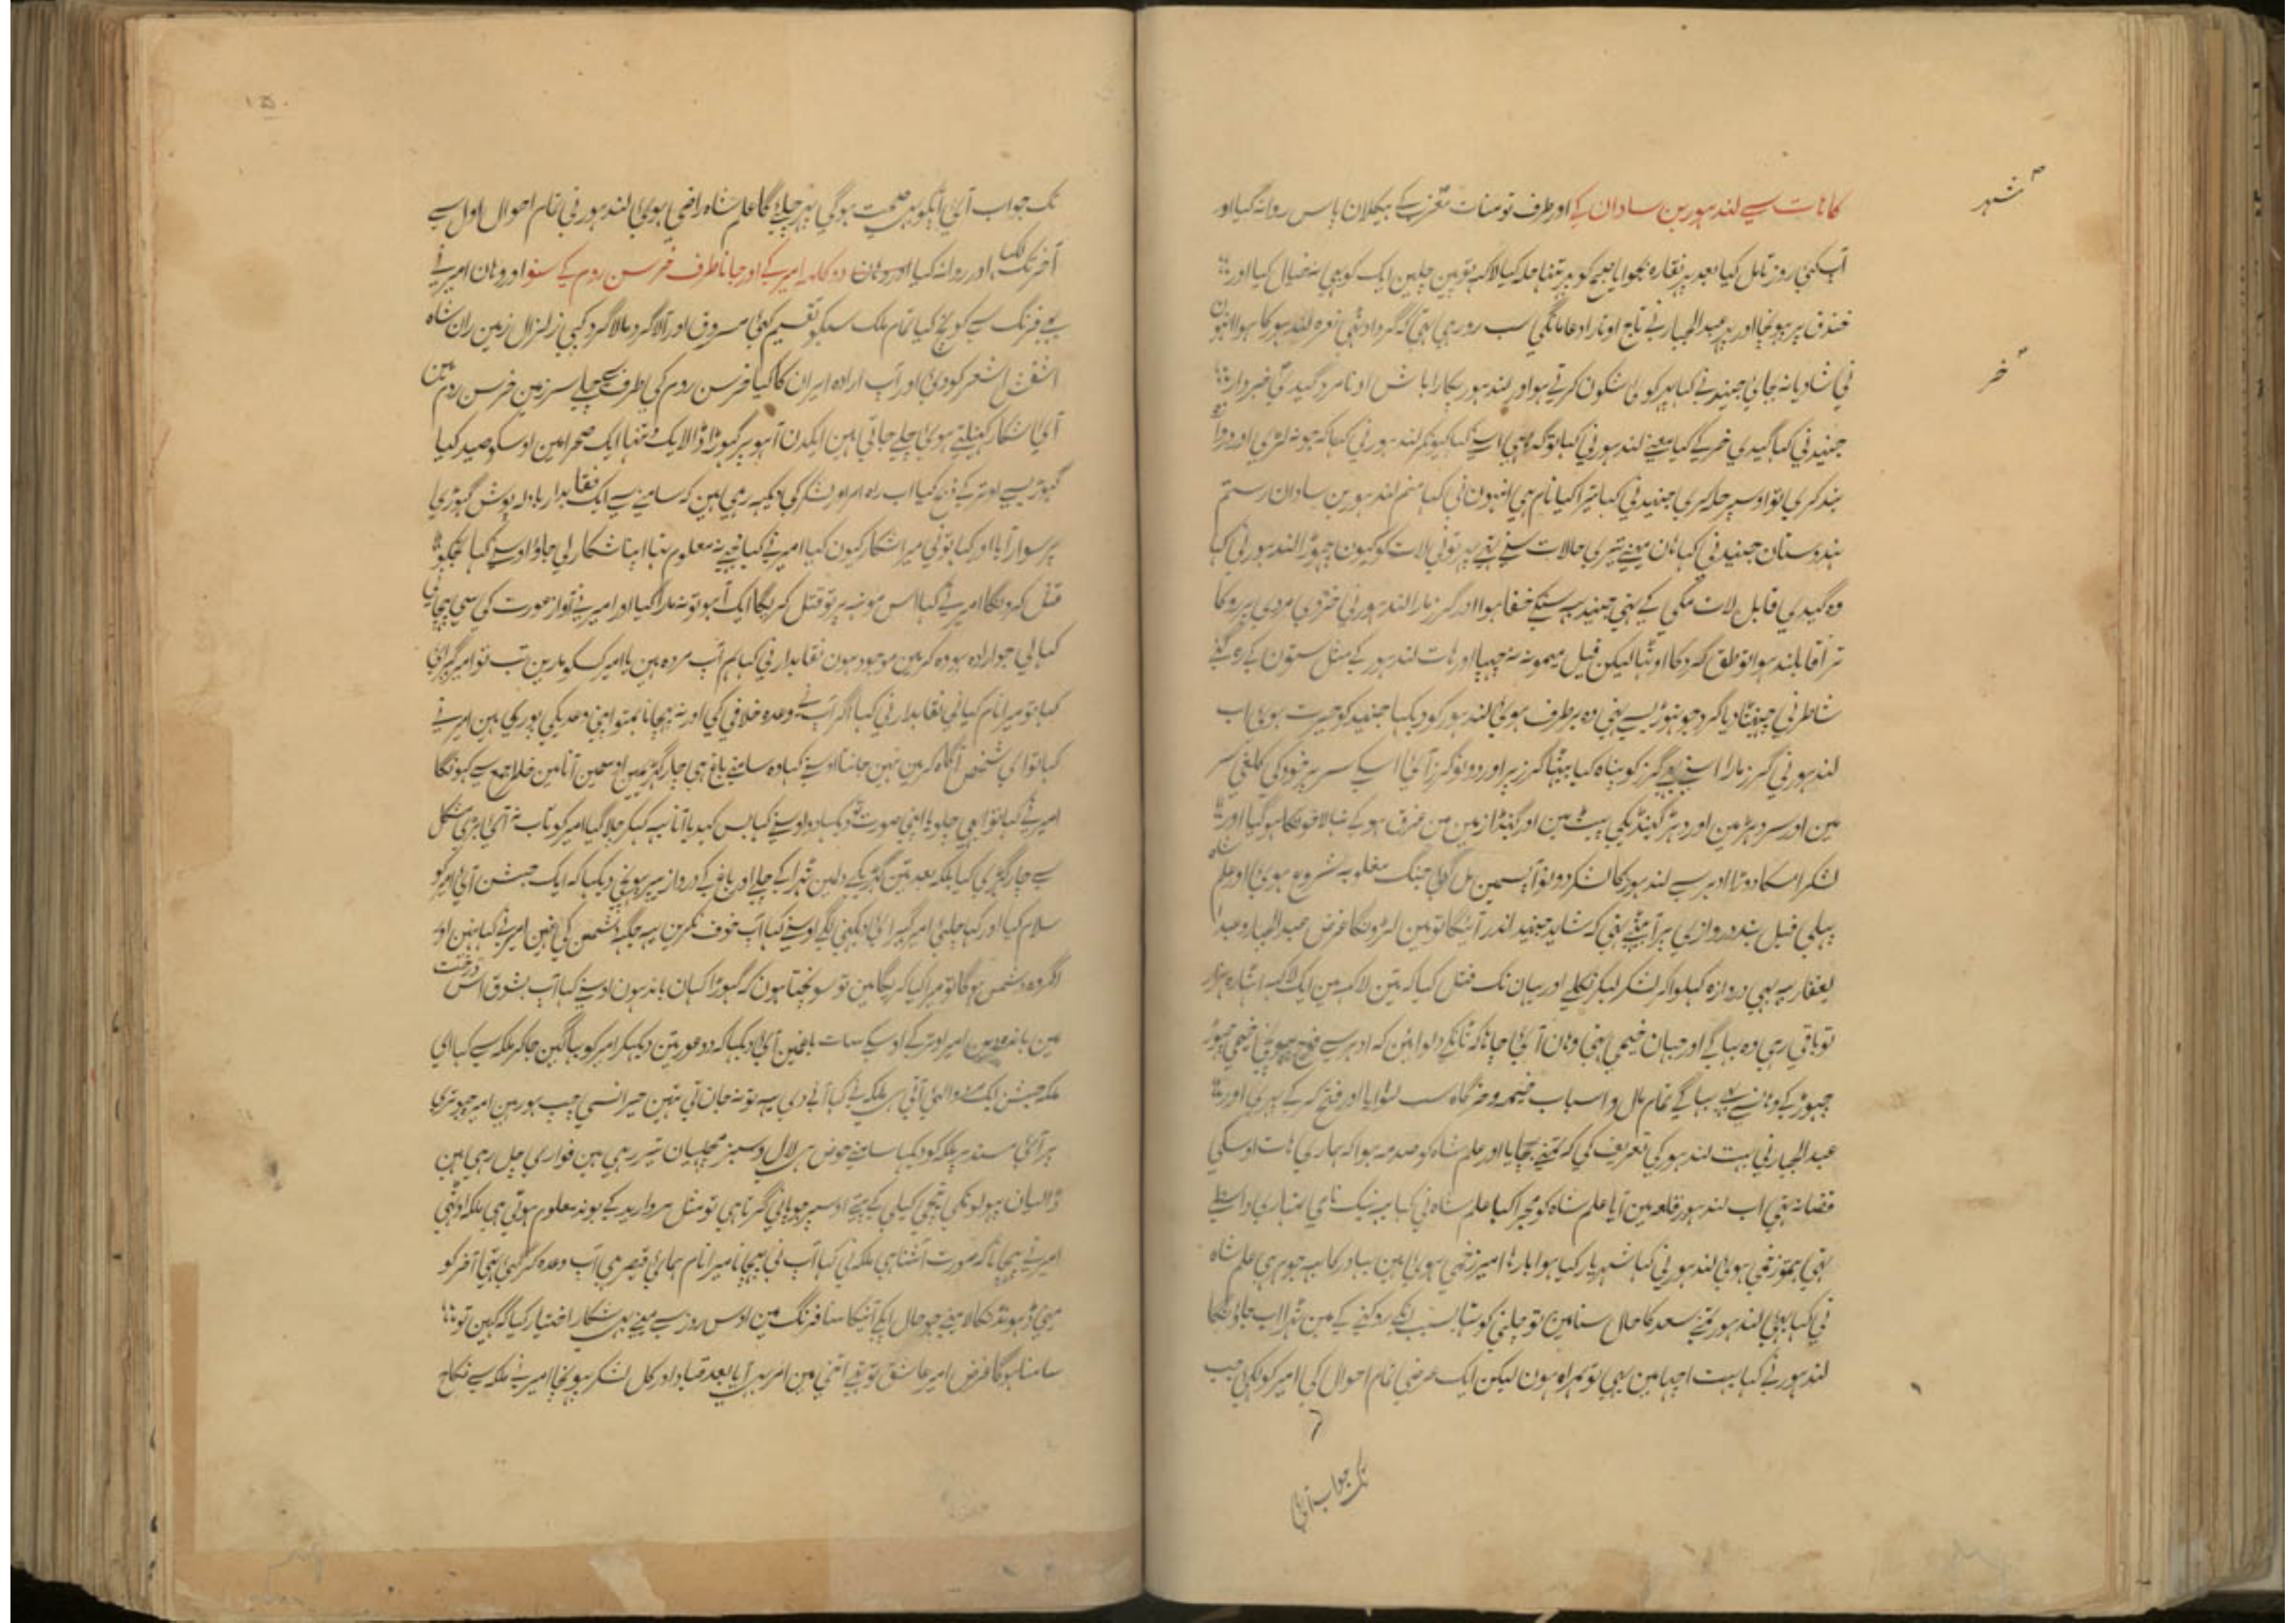 شہر
کا ہات سے لندہور بن سادان کے اور طرف تومنات مغرب کے ہیکلان پاس روانہ کیا اور
آپ کئی روز تامل کیا بعد پھر نقارہ بجوایا صبح کو پھر تنہا حملہ کیا لاکہہ توپین چلین ایک کو بہی نہ خیال کیا اور
خندق پر پہونچا اور پھر عبدالجبار نے تاج اوتارا دعا مانگی سب رو رہی تہی کہ گرد اوٹہی نعرہ لندہور کا ہوا انہون
نی شادیانہ بجائی جنید نے کہا پھر کوئی شگون کرتے ہو اور لندہور پکارا باش او نامرد گیدی خبردار
خر
جنید نی کہا گیدی خر کے کیا معنے لندہور نی کہا تو گدہا ہی اسنے کہا کیونکر لندہور نی کہا کہ جو نہ لڑی اور دروازہ
بند کری تو اوسپر حملہ کری جنید نی کہا تیرا کیا نام ہی انہون نی کہا منم لندہور بن سادان رستم
ہندوستان جنید نی کہا ہان مینے تیری حالات سنے تہے پھر تونی لات کو کیون چہوڑا لندہور نی کہا
وہ گیدی قابل لات مکی کے تہی جنید یہ سنکے خفا ہوا اور گرز مارا لندہور نی مردی پر روکا
تراقا بلند ہوا تو طلق گرد کا اوٹہا لیکن فیل میمونہ نہ چہپا اور ہات لندہور کے مثل ستون کے رہ گئے
شاطر نی چہینٹا دیا گرد جو تہوڑی سے تہی وہ برطرف ہوئی لندہور کو دیکہا جنید کو حیرت ہوئی اب
لندہور نی گرز مارا اسنے بہی گرز کو پناہ کیا بیٹہا گرز پر اور دونو گرز آئی اسکے سر پر خود کی کلغی سر
مین اور سر دہڑ مین اور دہڑ گینڈیکی پیٹ مین اور گینڈا زمین مین غرق ہو کے تہالا خونکا ہو گیا اور
لشکر اسکا دوڑا ادہر سے لندہور کا لشکر دونو آپسمین مل گئی جنگ مغلوبہ شروع ہوئی اور علم شاہ
پہلی فیل بند دروازی پر آ بیٹہے تہی کہ شاید جنید اندر آئیگا تو مین لڑونگا غرض عبدالجبار و عبدا
لغفار یہ بہی دروازہ کہلوا کر لشکر لیکر نکلے اور یہان تک قتل کیا کہ تین لاکہہ مین ایک لاکہہ اٹہارہ ہزار
تو باقی رہی وہ بہاگے اور جہان خیمی تہی وہان آئی چاہا کہ ٹانکے دلوائین کہ ادہر سے فوج پہونچی زخمی چہوڑ
چہوڑ کے وہانسے بہی بہاگے تمام مال و اسباب خیمہ و خرگاہ سب لٹوایا اور فتح کر کے پہری اور
عبدالجبار نی بہت لندہور کی تعریف کی کہ تمنے بچایا اور علم شاہ کو صدمہ ہوا کہ ہماری ہات اوسکی
قضا نہ تہی اب لندہور قلعہ مین آیا علم شاہ کو مجرا کیا علم شاہ نی کہا یہ نیک نامی تمہاری واسطے
تہی ہم تو زخمی ہوئی لندہور نی کہا شہریار کیا ہوا بارہا امیر زخمی ہوئی ہین بہادر کا یہہ جوہر ہی علم شاہ
نی کہا بہائی لندہور تمنے سعد کا حال سنا مین تو چلنی کو تہا بسبب انکے روکنے کے مین ٹہرا اب جاؤنگا
لندہور نے کہا بہت اچہا مین بہی تو ہمراہ ہون لیکن ایک عرضی تمام احوال کی امیر کو لکہی جب
تک جواب آئی
۱۵۰
تک جواب آئی آپکو بہی صحت ہوگی پھر چلیئگا علم شاہ راضی ہوئی لندہور نی تمام احوال اول سے
آخر تک لکہا اور روانہ کیا اور وہان دو کلمہ امیر کے اور جانا طرف خرسن روم کے سنو اور وہان امیر نے
بہی فرنگ سے کوچ کیا تمام ملک سبکو تقسیم کئی مرزوق اور آلا گرد مالا گرد کپی زلزال زمین ران شاہ
اشقش اشعر کو دیئ اور آپ ارادہ ایران کا کیا خرسن روم کی طرف سے چلے سرزمین خرسن روم مین
آئی شکار کہیلتے ہوئی چلے جاتی ہین ایکدن آہو پر گہوڑا ڈالا یک و تنہا ایک صحرا مین اوسکو صید کیا
گہوڑیسے اوتر کے ذبح کیا اب راہ امرا و لشکر کی دیکہہ رہی ہین کہ سامنے سے ایک نقابدار پوش گہوڑی
پر سوار آیا اور کہا تونی میرا شکار کیون کیا امیر نی کہا مجہے نہ معلوم تہا اپنا شکار لی جاؤ اوسنے کہا تجہکو
قتل کرونگا امیر نے کہا اس مونہہ پر تو قتل کریگا ایک آہو تو نہ مارا گیا اور امیر نے آواز عورت کی سی پہچانی
کہا لی جو ارادہ ہو وہ کر مین موجود ہون نقابدار نی کہا ہم آپ مردہ ہین یا امیر کسکو مارین تب تو امیر گہبرائی
کہا تو میرا نام کیا نی نقابدار نی کہا اگر آپ نے وعدہ خلافی کی اور نہ پہچانا ہم تو اپنی وعدیکی پوری ہین امیر نے
کہا تو ای شخص آگاہ کر مین نہین جانتا اوسنے کہا وہ سامنے باغ ہی چار گہڑیمین اوسمین آنا مین خاطر جمع سے کہونگا
امیر نے کہا تو ابہی چلو یا اپنی صورت تو دیکہا دو اوسنے کہا بس کہدیا آنا یہ کہکر چلا گیا امیر کو تاب نہ آئی بڑی مشکل
سے چار گہڑی کیا بلکہ بعد تین گہڑیکے دلمین ٹہرا کے چلے اور باغ کے دروازیپر پہونچی دیکہا کہ ایک حبشن آئی امیر کو
سلام کیا اور کہا چلئی امیر گہبرائی دیکہنی لگے اوسنے کہا آپ خوف نکرین یہہ جگہہ دشمن کی نہین امیر نے کہا نہین اور
اگر وہ دشمن ہوگا تو میرا کیا کریگا مین تو سونچتا ہون کہ گہوڑا کہان باندہون اوسنے کہا آپ بشوق اس درخت
مین باندہدین امیر اوتر کے اوسکے سات باغمین آئی دیکہا کہ دو عورتین دیکہکر امیر کو بہاگین جا کر ملکہ سے کہا ای
ملکہ حبشن ایک مردوا لئی آتی ہی ملکہ نے کہا آنے دی یہ تو نہ جان تی تہین حیرانسی چپ ہو رہین امیر چبوتری
پر آئی مسند پر ملکہ کو دیکہا سامنے حوض ہی لال و سبز مچہلیان تیر رہی ہین فواری چل رہی ہین
ڈالیان پہولونکی نیچی کیلی کے پتے اوسپر جو پانی گرتا ہی تو مثل مروارید کے بوند معلوم ہوتی ہی ملکہ اوٹہی
امیر نے پہچانا کہ صورت آشنا ہی ملکہ نی کہا آپ نی پہچانا میرا نام ہمائی قیصر ہی آپ وعدہ کر گئی تہی آخر کو
مینی ڈہونڈ نکالا مینے جو حال آپکے آنیکا سنا فرنگ مین اوس روز سے مینے بہی شکار اختیار کیا کہ کہین تو
سامنا ہوگا غرض امیر عاشق تو تہے اتنی مین امر بہی آیا بعد قباد اور کل لشکر پہونچا امیر نے ملکہ سے نکاح